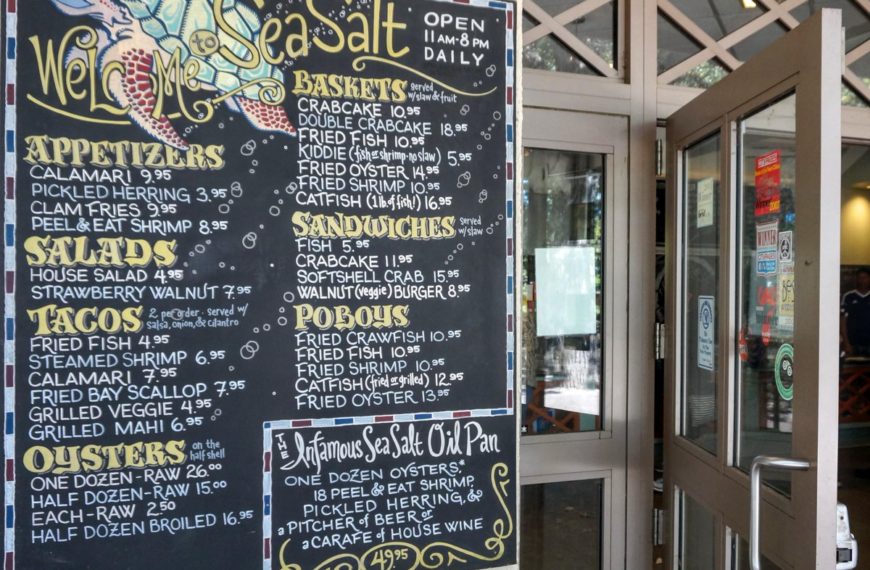 Welcome to Sea Salt
OPEN
11 AM-8 PM
DAILY
APPETIZERS
CALAMARI 9.95
PICKLED HERRING 3.95
CLAM FRIES 9.95
PEEL & EAT SHRIMP 8.95
SALADS
HOUSE SALAD 4.95
STRAWBERRY WALNUT 7.95
TACOS 2 per order · served w/ salsa, onion, & cilantro
FRIED FISH 4.95
STEAMED SHRIMP 6.95
CALAMARI 7.95
FRIED BAY SCALLOP 7.95
GRILLED VEGGIE 4.95
GRILLED MAHI 6.95
OYSTERS on the half shell
ONE DOZEN-RAW 26.00
HALF DOZEN-RAW 15.00
EACH-RAW 2.50
HALF DOZEN BROILED 16.95
BASKETS served w/slaw & fruit
CRABCAKE 10.95
DOUBLE CRABCAKE 18.95
FRIED FISH 10.95
KIDDIE (fish or shrimp-no slaw) 5.95
FRIED OYSTER 14.95
FRIED SHRIMP 10.95
CATFISH (1 lb. of fish!) 16.95
SANDWICHES served w/slaw
FISH 5.95
CRABCAKE 11.95
SOFTSHELL CRAB 15.95
WALNUT (veggie) BURGER 8.95
POBOYS
FRIED CRAWFISH 10.95
FRIED FISH 10.95
FRIED SHRIMP 10.95
CATFISH (fried or grilled) 12.95
FRIED OYSTER 13.95
THE Infamous Sea Salt Oil Pan
ONE DOZEN OYSTERS,*
18 PEEL & EAT SHRIMP,
PICKLED HERRING, &
a PITCHER of BEER or
a CARAFE of HOUSE WINE
49.95
WINNER